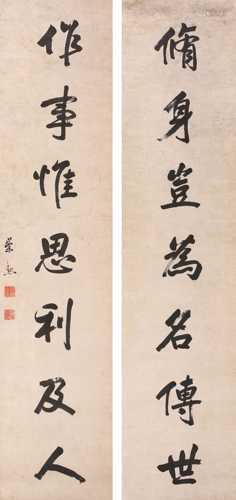 脩身豈為名傳世
作事惟思利及人